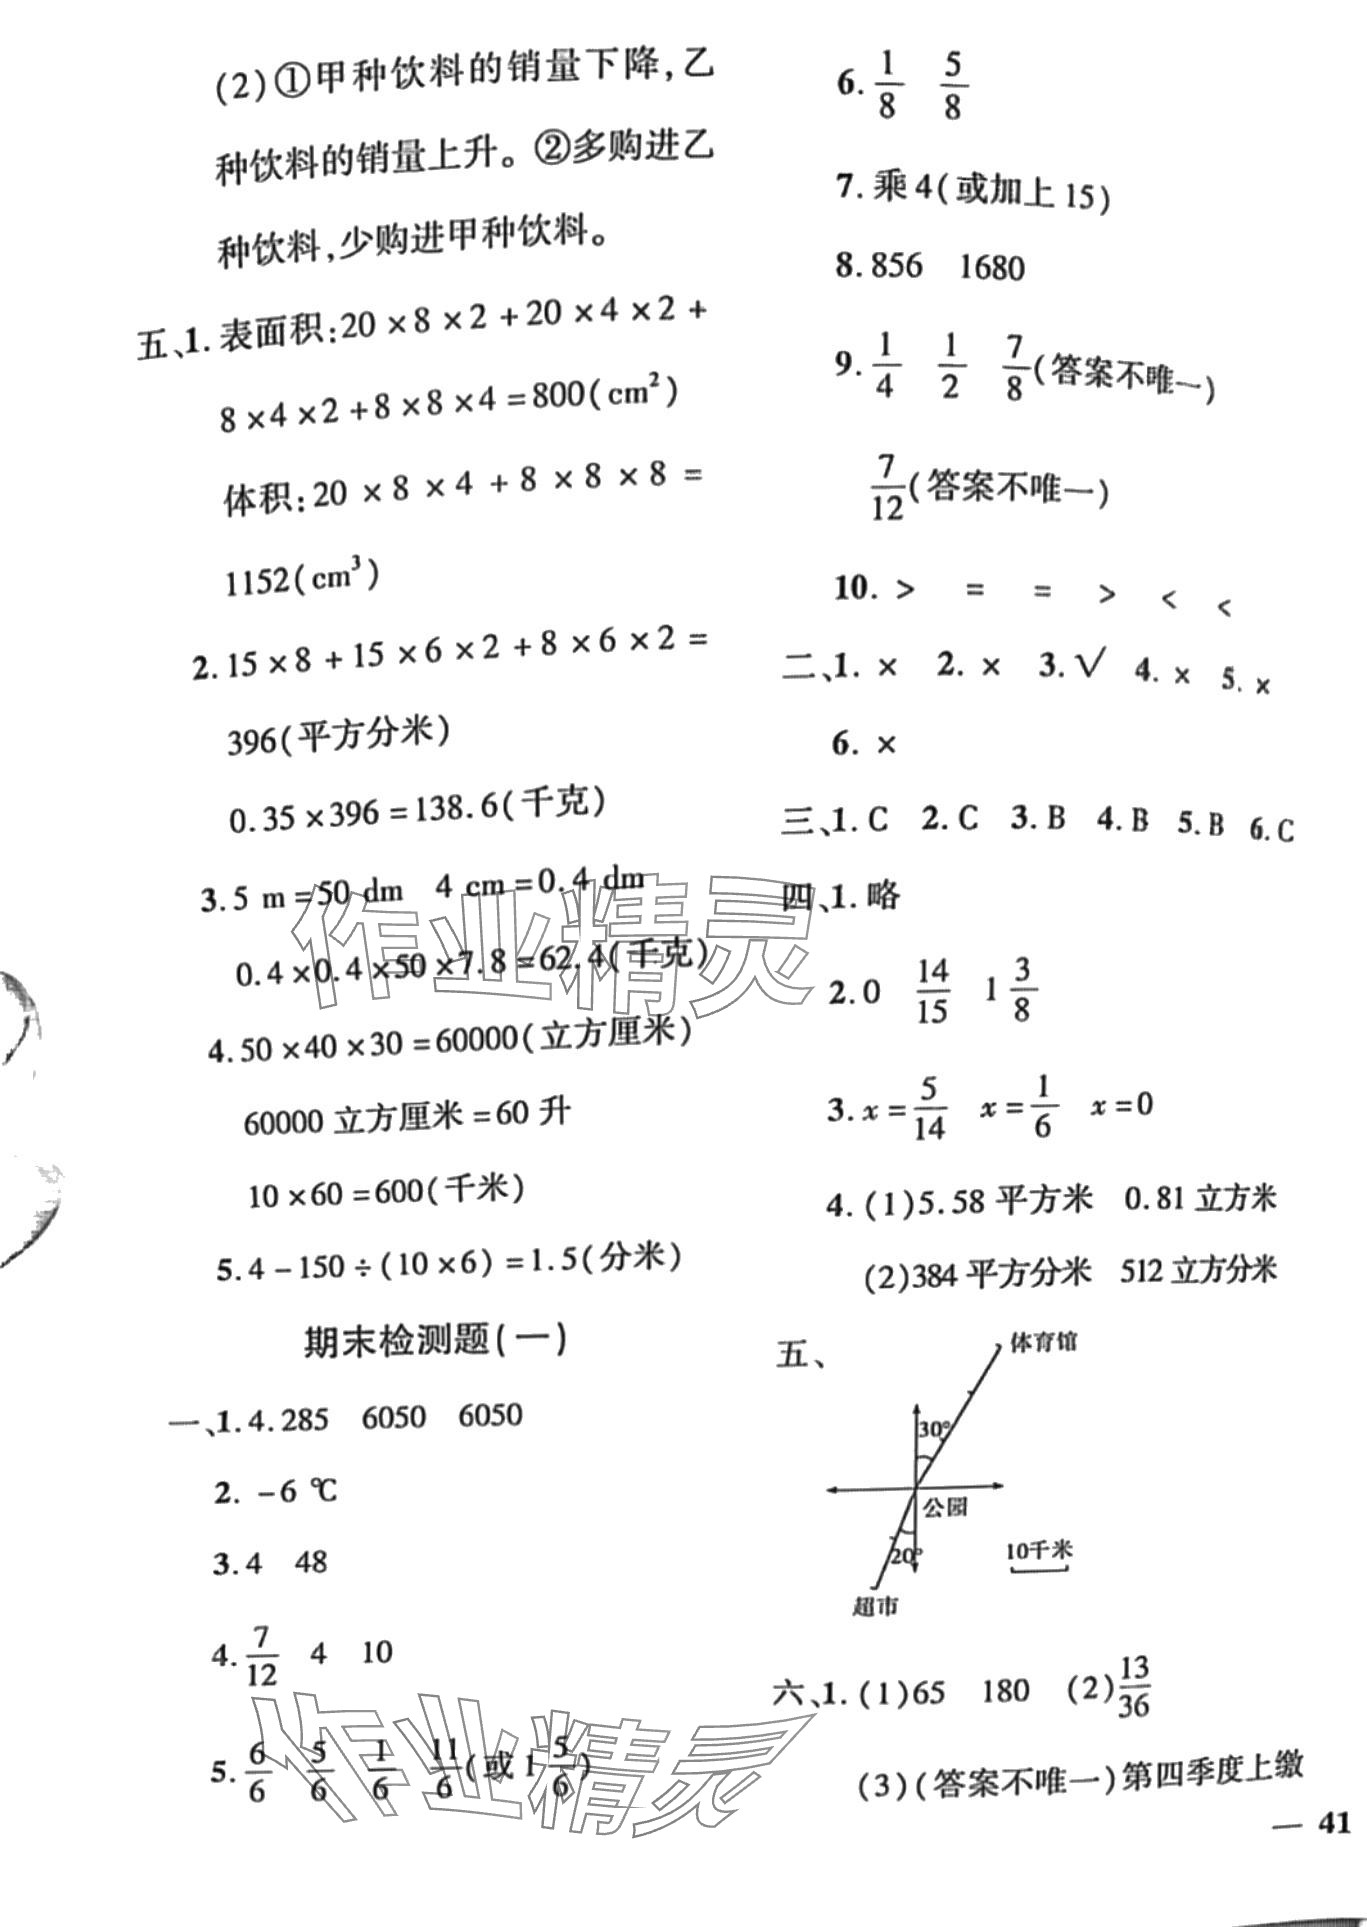 (2)①甲种饮料的销量下降,乙
种饮料的销量上升。②多购进乙
种饮料,少购进甲种饮料。
五、1. 表面积:20×8×2+20×4×2+
8×4×2+8×8×4=800(cm²)
体积:20×8×4+8×8×8=
1152(cm³)
2. 15×8+15×6×2+8×6×2=
396(平方分米)
0.35×396=138.6(千克)
3. 5 m=50 dm 4 cm=0.4 dm
0.4×0.4×50×7.8=62.4(千克)
4. 50×40×30=60000(立方厘米)
60000 立方厘米=60 升
10×60=600(千米)
5. 4-150÷(10×6)=1.5(分米)
期末检测题(一)
一、1. 4.285 6050 6050
2. -6 ℃
3. 4 48
4. 7/12 4 10
5. 6/6 5/6 1/6 11/6(或1 5/6)
6. 1/8 5/8
7. 乘4(或加上15)
8. 856 1680
9. 1/4 1/2 7/8(答案不唯一)
7/12(答案不唯一)
10. > = = > < <
二、1. × 2. × 3. √ 4. × 5. ×
6. ×
三、1. C 2. C 3. B 4. B 5. B 6. C
四、1. 略
2. 0 14/15 1 3/8
3. x=5/14 x=1/6 x=0
4. (1)5.58 平方米 0.81 立方米
(2)384 平方分米 512 立方分米
五、
体育馆
30°
公园
20°
10千米
超市
六、1. (1)65 180 (2)13/36
(3)(答案不唯一)第四季度上缴
— 41
作业精灵
作业精灵